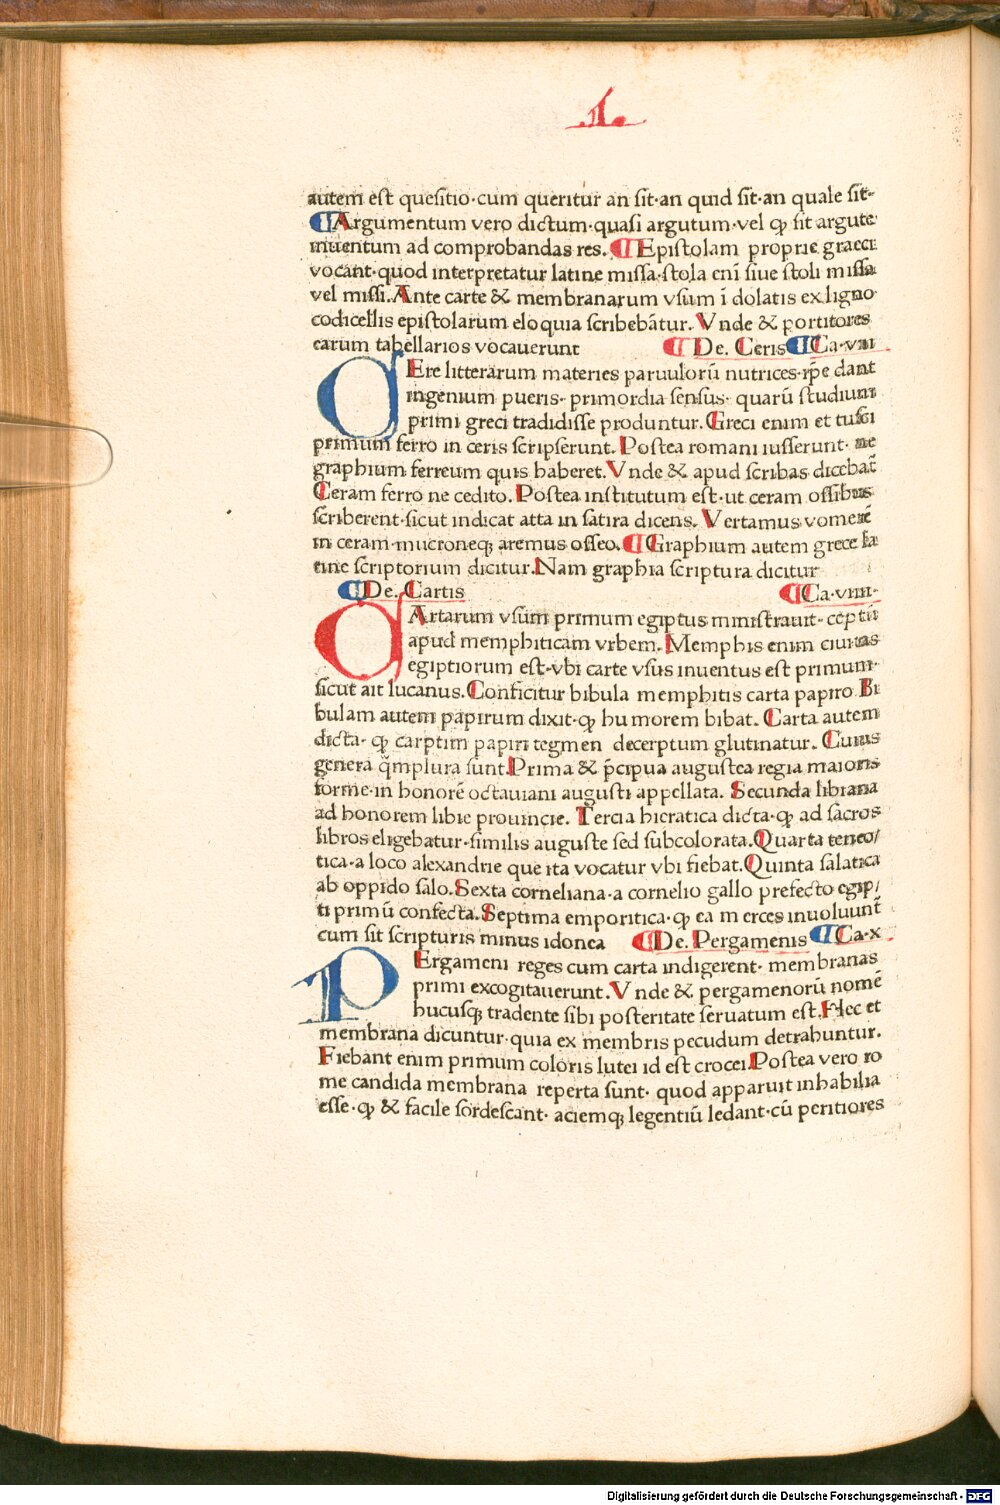 .L.
autem est quesitio·cum queritur an sit·an quid sit·an quale sit-
¶Argumentum vero dictum·quasi argutum·vel ꝙ sit argute
inuentum ad comprobandas res.¶Epistolam proprie graeci
vocant·quod interpretatur latine missa·stola enī siue stoli missa
vel missi.Ante carte & membranarum vsum ī dolatis ex ligno·
codicellis epistolarum eloquia scribebātur. Vnde & portitores
earum tabellarios vocauerunt ¶De. Ceris¶Ca·viii
CEre litterarum materies paruulorū nutrices·ip̄e dant
ingenium pueris· primordia sensus· quarū studium
primi greci tradidisse produntur. Greci enim et tusci
primum ferro in ceris scripserunt. Postea romani iusserunt· ne
graphium ferreum quis haberet.Vnde & apud scribas dicebat̄
Ceram ferro ne cedito. Postea institutum est·ut ceram ossibus
scriberent·sicut indicat atta in satira dicens. Vertamus vomerē
in ceram·mucroneqꝫ aremus osseo.¶Graphium autem grece la
tine scriptorium dicitur.Nam graphia scriptura dicitur
¶De. Cartis ¶Ca·viiii·
CArtarum vsum primum egiptus ministrauit· ceptū
apud memphiticam vrbem. Memphis enim ciuitas
egiptiorum est·vbi carte vsus inuentus est primum·
sicut ait lucanus. Conficitur bibula memphitis carta papiro Bi
bulam autem papirum dixit·ꝙ humorem bibat. Carta autem
dicta· ꝙ carptim papiri tegmen decerptum glutinatur. Cuius
genera q̄mplura sunt.Prima & p̄cipua augustea regia maioris
forme·in honorē octauiani augusti appellata. Secunda libiana
ad honorem libie prouincie. Tercia hieratica dicta·ꝙ ad sacros
libros eligebatur·similis auguste sed subcolorata.Quarta teneo/
tica·a loco alexandrie que ita vocatur vbi fiebat.Quinta salatica
ab oppido salo.Sexta corneliana·a cornelio gallo prefecto egip/
ti primū confecta.Septima emporitica·ꝙ ea merces inuoluunt̄
cum sit scripturis minus idonea ¶De. Pergamenis ¶Ca·x
PErgameni reges cum carta indigerent· membranas
primi excogitauerunt.Vnde & pergamenorū nomē
hucusqꝫ tradente sibi posteritate seruatum est.Hec et
membrana dicuntur·quia ex membris pecudum detrahuntur.
Fiebant enim primum coloris lutei id est crocei.Postea vero ro
me candida membrana reperta sunt· quod apparuit inhabilia
esse·ꝙ & facile sordescant· aciemqꝫ legentiū ledant·cū peritiores
Digitalisierung gefördert durch die Deutsche Forschungsgemeinschaft - DFG